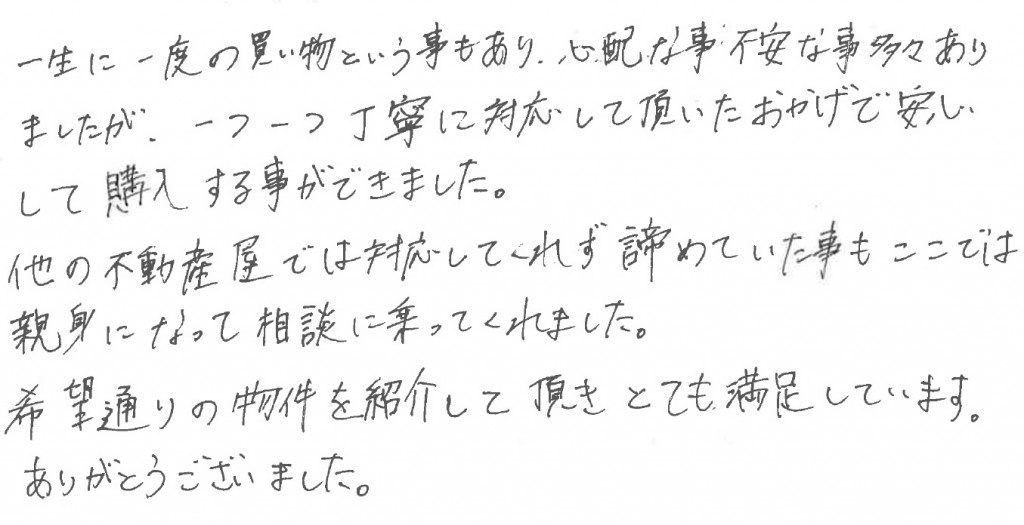 一生に一度の買い物という事もあり、心配な事不安な事多々あり
ましたが、一つ一つ丁寧に対応して頂いたおかげで安心
して購入する事ができました。
他の不動産屋では対応してくれず諦めていた事もここでは
親身になって相談に乗ってくれました。
希望通りの物件を紹介して頂きとても満足しています。
ありがとうございました。